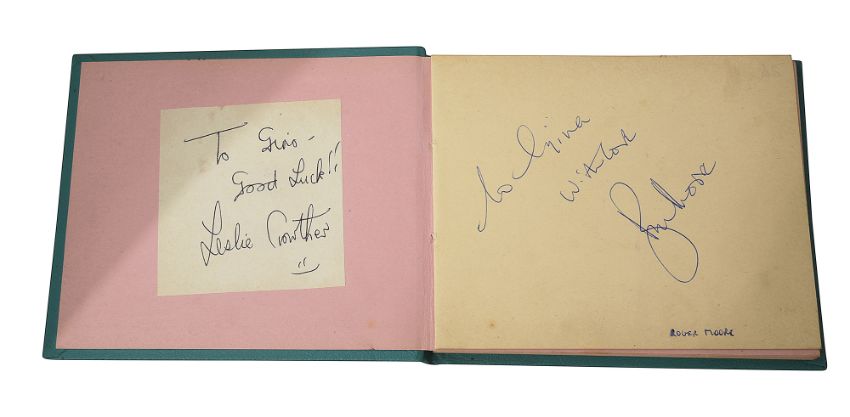 To Gino -
Good Luck!!
Leslie Crowther
to Gina
With love
Roger Moore
ROGER MOORE